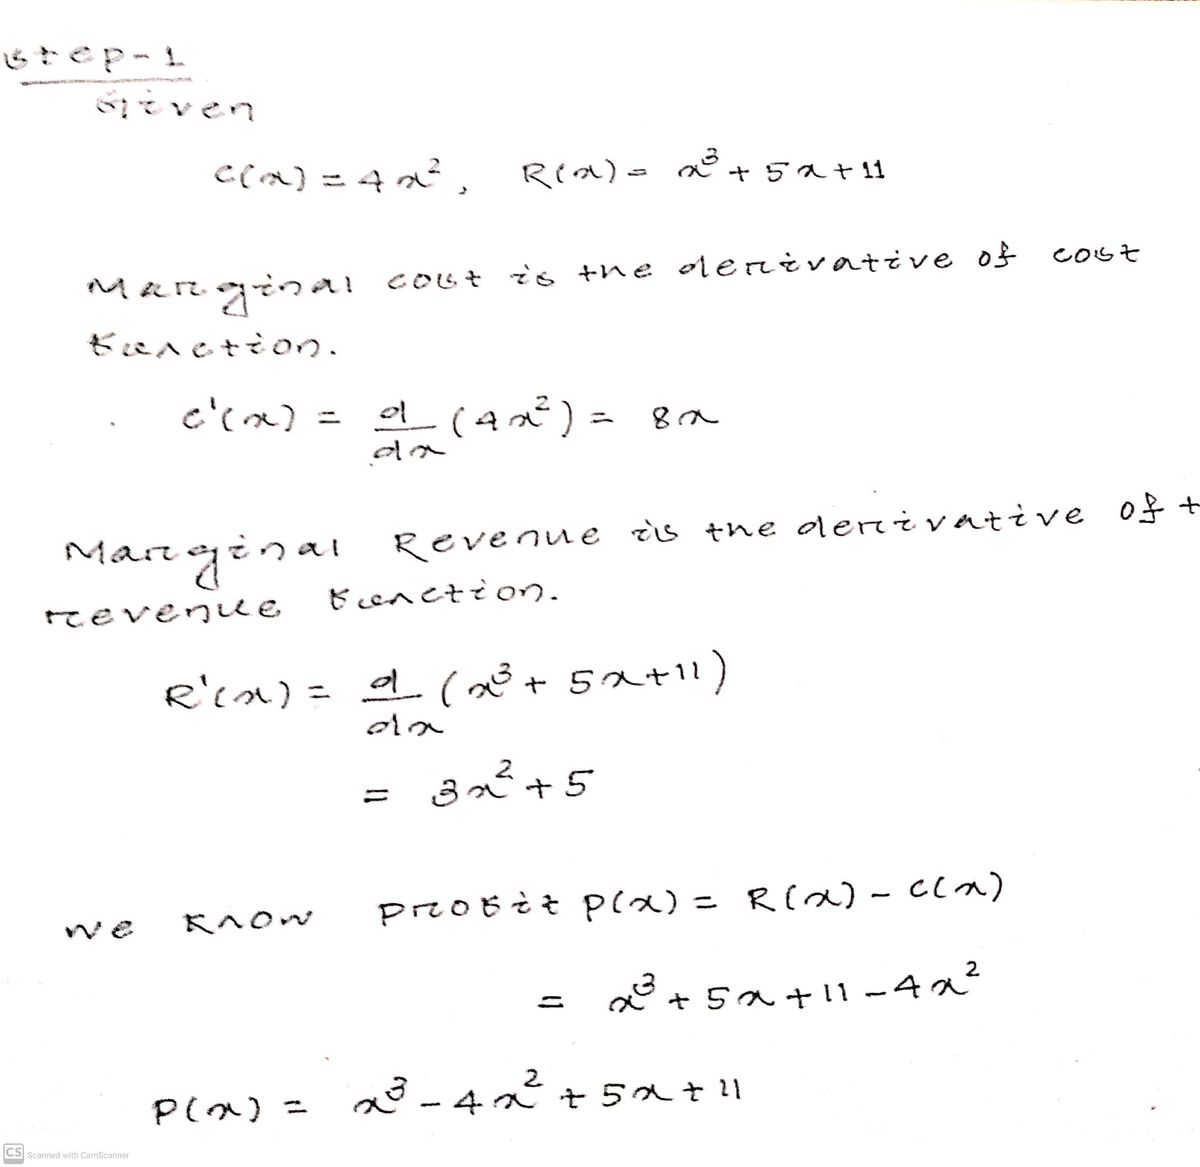 Step-1
Given
C(x) = 4x², R(x) = x³ + 5x + 11
Marginal cost is the derivative of cost
function.
C'(x) = d/dx (4x²) = 8x
Marginal Revenue is the derivative of t
revenue function.
R'(x) = d/dx (x³ + 5x + 11)
= 3x² + 5
We know profit P(x) = R(x) - C(x)
= x³ + 5x + 11 - 4x²
P(x) = x³ - 4x² + 5x + 11
CS Scanned with CamScanner